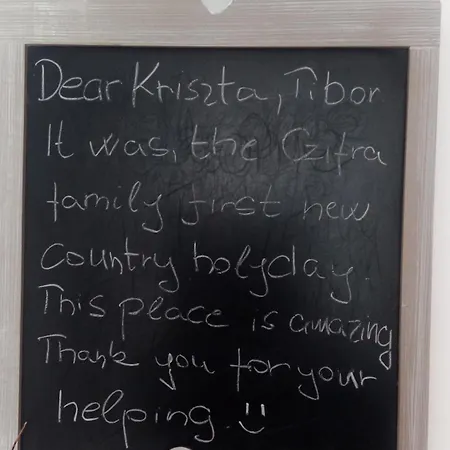 Dear Kriszta, Tibor
It was, the Czifra
family first new
country holyday.
This place is amazing
Thank you for your
helping. :)